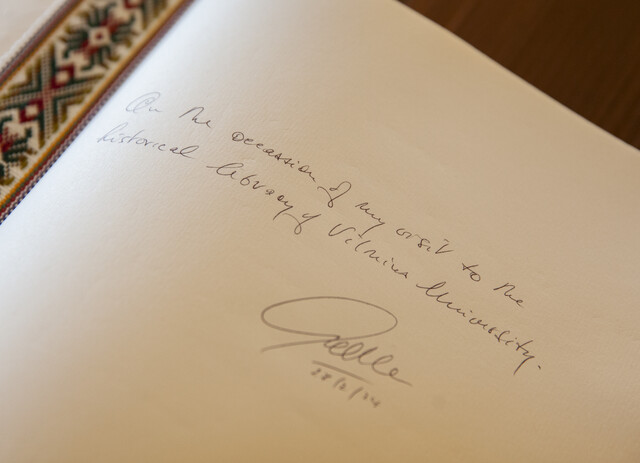 On the occassion of my visit to the
historical library of Vilnius University.